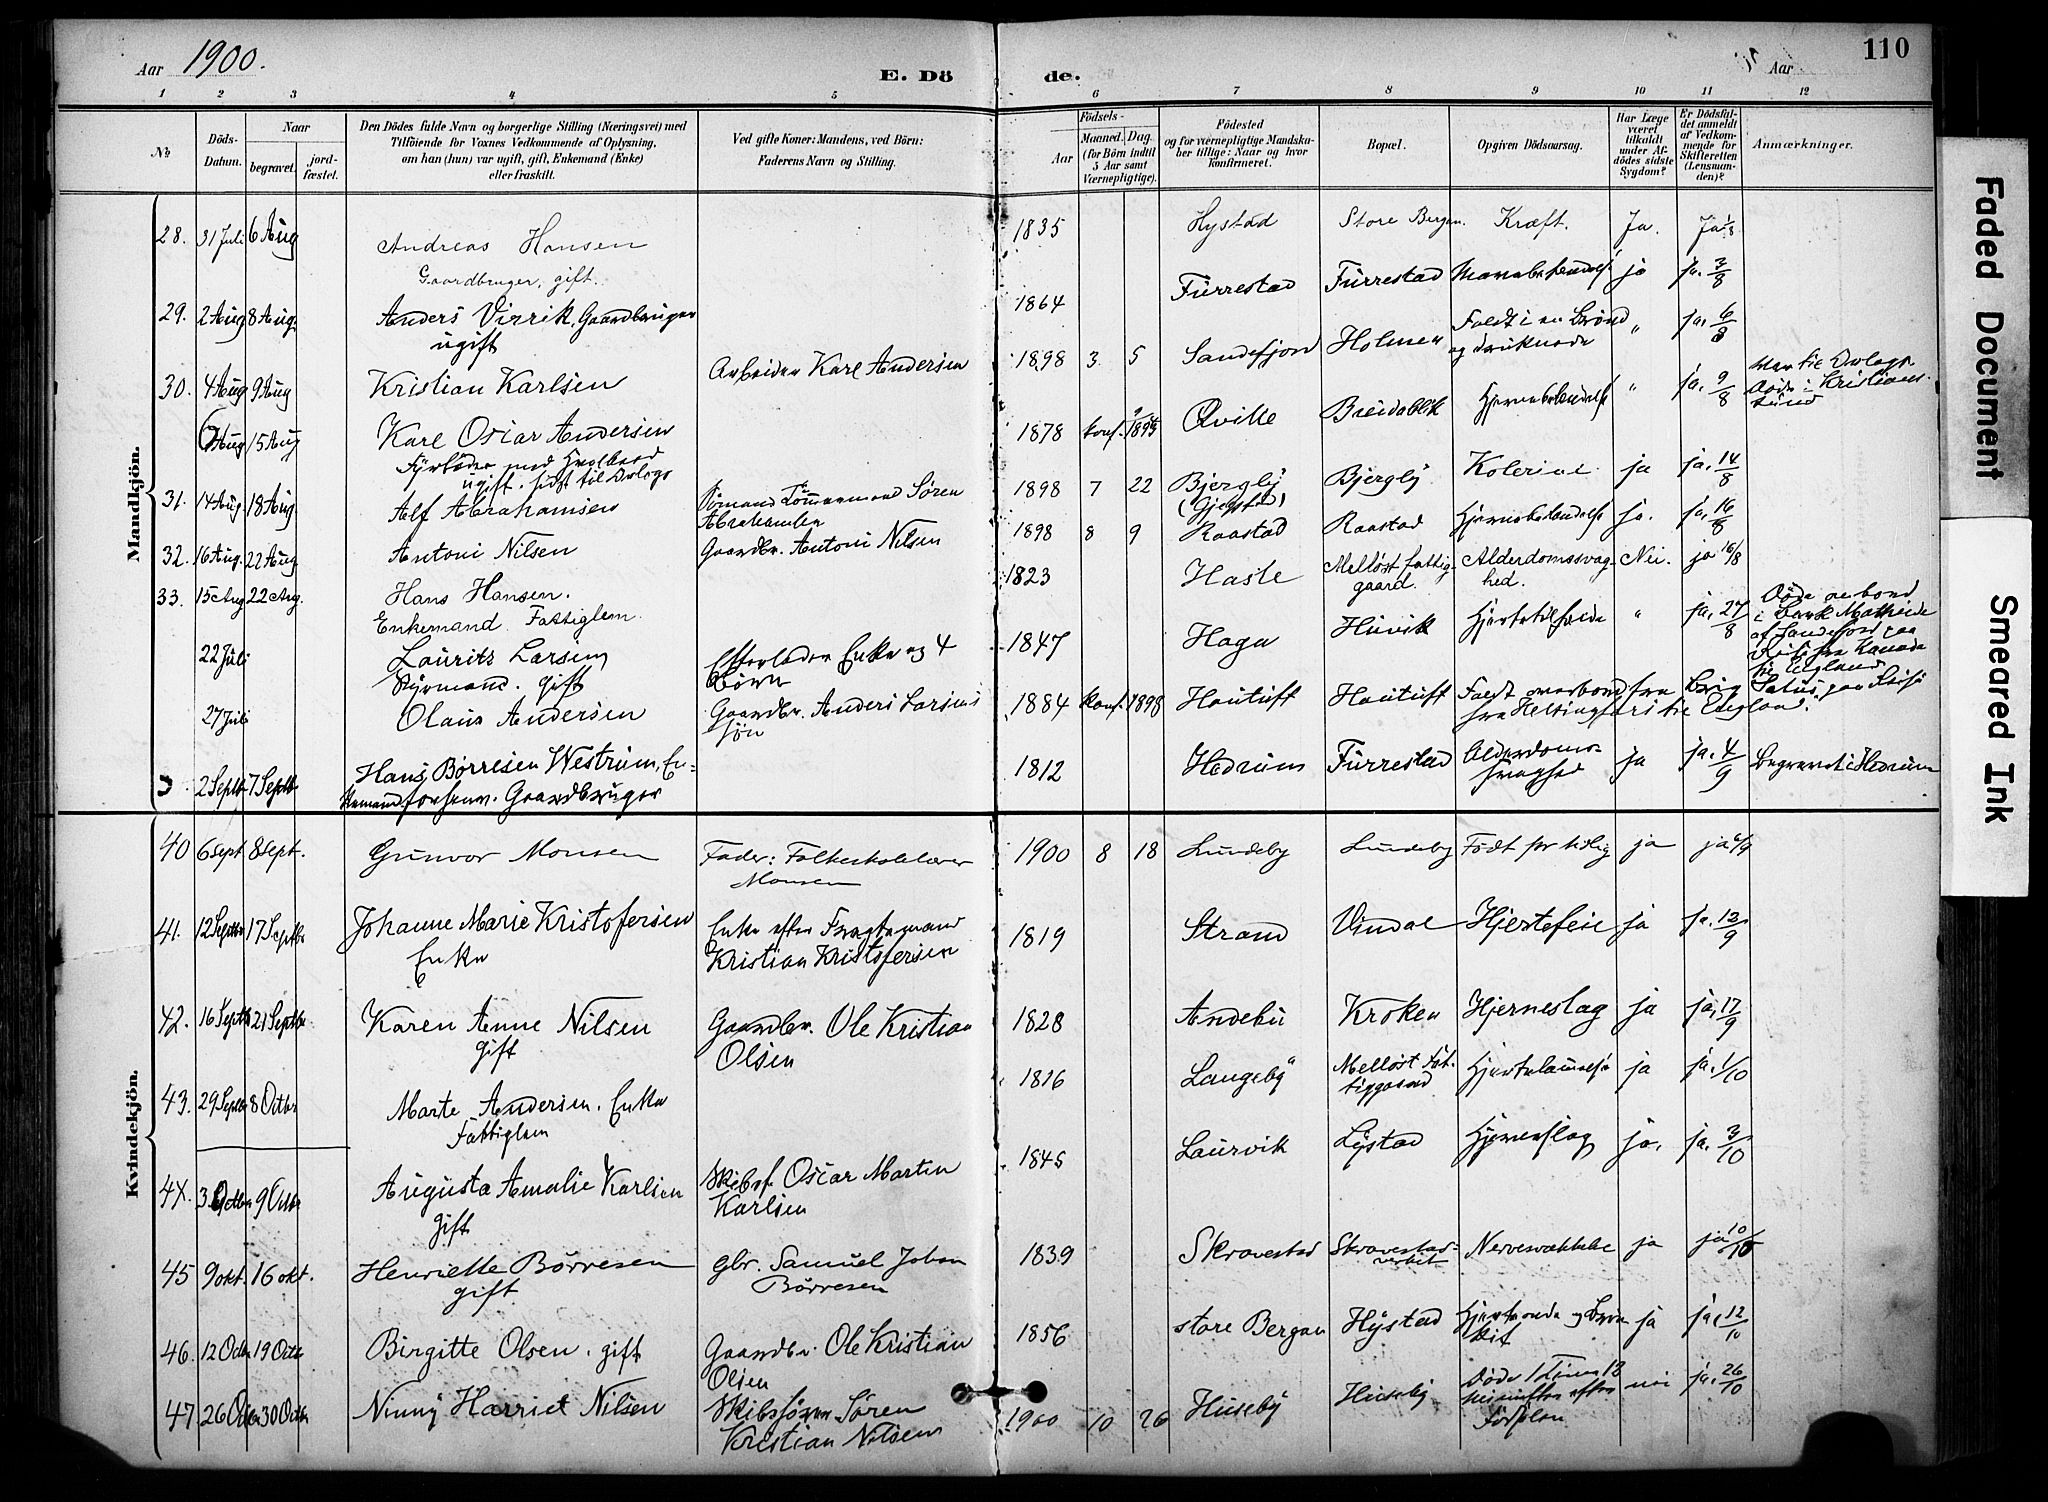 Aar 1900.
E. Døde.
Aar
110
1 2 3 4 5 6 7 8 9 10 11 12
No
Döds-Datum.
Naar
begravet. jordfæstet.
Den Dödes fulde Navn og borgerlige Stilling (Næringsvei) med
Tilföiende for Voxnes Vedkommende af Oplysning,
om han (hun) var ugift, gift, Enkemand (Enke)
eller fraskilt.
Ved gifte Koner: Mandens, ved Börn:
Faderens Navn og Stilling.
Födsels-
Aar
Maaned. Dag.
(for Börn indtil
5 Aar samt
Værnepligtige).
Födested
og for værnepligtige Mandskaber tillige: Naar og hvor
konfirmeret.
Bopæl.
Opgiven Dödsaarsag.
Har Læge
været
tilkaldt
under Afdödes sidste
Sygdom?
Er Dödsfaldet anmeldt
af Vedkommende for
Skifteretten
(Lensmanden)?
Anmærkninger.
Mandkjön.
28. 31 Juli 6 Aug Andreas Hansen 1835 Hystad Store Bergan. Kræft. Ja. Ja 1/8
Gaardbruger, gift.
29. 2 Aug 8 Aug. Anders Virrik, Gaardbruger 1864 Furrestad Furrestad ja ja. 3/8
ugift
30. 4 Aug 9 Aug Kristian Karlsen Arbeider Karl Andersen 1898 3 5 Sandefjord Holmen Faldt i en Brønd " ja. 6/8
og druknede
6 Aug 15 Aug Karl Oscar Andersen 1878 konf. Qville Breidablik Hjernebetændelse " ja. 9/8
Fyrbøder ugift.
Døde i Kristianssund
31. 14 Aug 18 Aug Alf Abrahamsen Tømmermand Søren 1898 7 22 Bjergby Bjergby Kolerine ja ja. 14/8
Abrahamsen (Gjerstad)
32. 16 Aug. 22 Aug Antoni Nilsen Gaardbr. Antoni Nilsen 1898 8 9 Raastad Raastad Hjernebetændelse ja. ja. 16/8
33. 15 Aug 22 Aug. Hans Hansen. 1823 Hasle Melløst fattiggaard. Alderdomssvaghed. Nei. ja 16/8
Enkemand. Fattiglem.
22 Juli Laurits Larsen Efterlader Enke og 4 1847 Haga Huvik " ja. 27/8
Styrmand. gift Børn
Døde ombord
i Bark Mathilde
af Sandefjord paa
Reise fra Kanada
til England
27 Juli Olaus Andersen Gaardbr. Anders Larsens 1884 konf. 1898 Hautuft Hautuft Faldt overbord fra Brig Satus, paa Reise
søn fra Helsingfors til England.
2 Septb. 7 Septb. Hans Børresen Westrum, En- 1812 Hedrum Furrestad Alderdoms- ja ja. 4/9 Begravet i Hedrum
kemand forhenv. Gaardbruger svaghed
Kvindekjön.
40 6 sept 8 sept. Gunvor Monsen Fader: Folkeskolelærer 1900 8 18 Lundeby Lundeby Födt for tidlig ja ja 6/9
Monsen
41. 12 Septbr 17 Septbr Johanne Marie Kristofersen Enke efter Fragtemand 1819 Strand Vindal Hjertefeil ja ja. 12/9
Enke Kristian Kristofersen
42. 16 Septb 21 Septbr Karen Anne Nilsen Gaardbr. Ole Kristian 1828 Andebu Kroken Hjerneslag ja ja, 17/9
gift Olsen
43. 29 Septbr 8 Octbr Marte Andersen, Enke 1816 Langeby Melløst Fattiggaard Hjertelammelse ja ja. 1/10
Fattiglem
44. 3 Octbr 9 Octbr Augusta Amalie Karlsen Skibsf. Oscar Martin 1845 Laurvik Lystad Hjerneslag ja. ja. 3/10
gift Karlsen
45 9 okt. 16 okt. Henriette Børresen gbr. Samuel Johan 1839 Skravestad Skravestad- Nervesvækkelse ja ja 10/10
gift Børresen
46. 12 Octbr 19 Octb Birgitte Olsen. gift Gaardbr. Ole Kristian 1856 store Bergan Hystad ja ja, 12/10
Olsen
47 26 Octbr 30 Octbr Ninny Harriet Nilsen Skibsfører Søren 1900 10 26 Huseby Huseby Døde 1 Time 12 nei ja. 26/10
Kristian Nilsen minutter efter
Fødselen
Faded Document
Smeared Ink